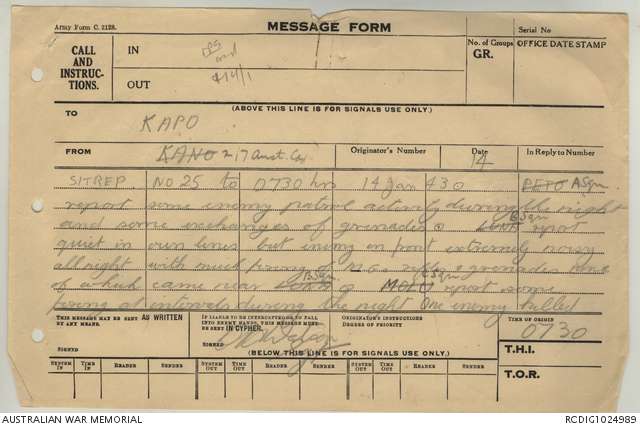 Army Form C. 2128.
MESSAGE FORM
Serial No
CALL AND INSTRUCTIONS.
IN
OUT
$14/1
No. of Groups
GR.
OFFICE DATE STAMP
(ABOVE THIS LINE IS FOR SIGNALS USE ONLY.)
TO
KAPO
FROM
KANO 2/7 Aust. Cav
Originator's Number
Date
14
In Reply to Number
SITREP. NO 25 to 0730 hrs 14 Jan 43 O PETO A Sqn
report some enemy patrol activity during the night
and some exchanges of grenades O B Sqn report
quiet in own lines but enemy on front extremely noisy
all night with much firing of rifles & grenades none
of which came near B Sqn O MOLO Sqn report some
firing at intervals during the night One enemy killed
THIS MESSAGE MAY BE SENT AS WRITTEN BY ANY MEANS.
SIGNED
IF LIABLE TO BE INTERCEPTED OR FALL INTO ENEMY HANDS, THIS MESSAGE MUST BE SENT IN CYPHER.
SIGNED
ORIGINATOR'S INSTRUCTIONS
DEGREE OF PRIORITY
TIME OF ORIGIN
0730
(BELOW THIS LINE IS FOR SIGNALS USE ONLY.)
T.H.I.
T.O.R.
SYSTEM IN
TIME IN
READER
SENDER
SYSTEM OUT
TIME OUT
READER
SENDER
SYSTEM OUT
TIME OUT
READER
SENDER
AUSTRALIAN WAR MEMORIAL
RCDIG1024989